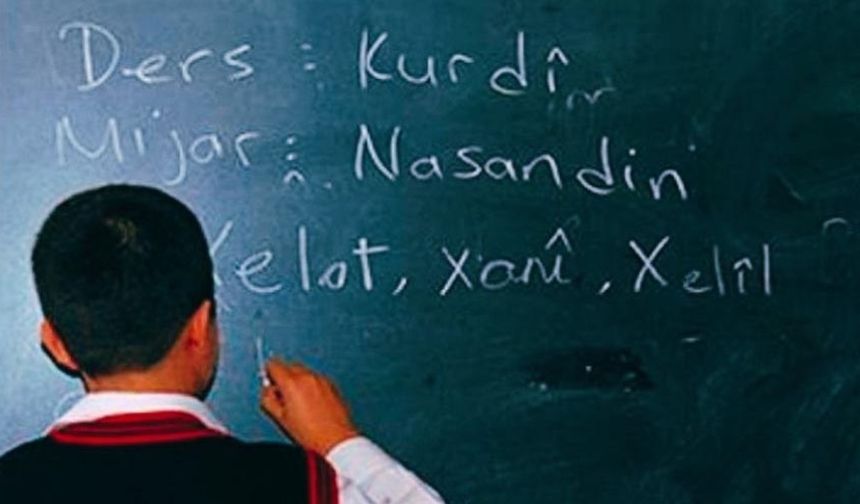 Ders : Kurdî
Mijar : Nasandin
Xelat, Xanî, Xelîl